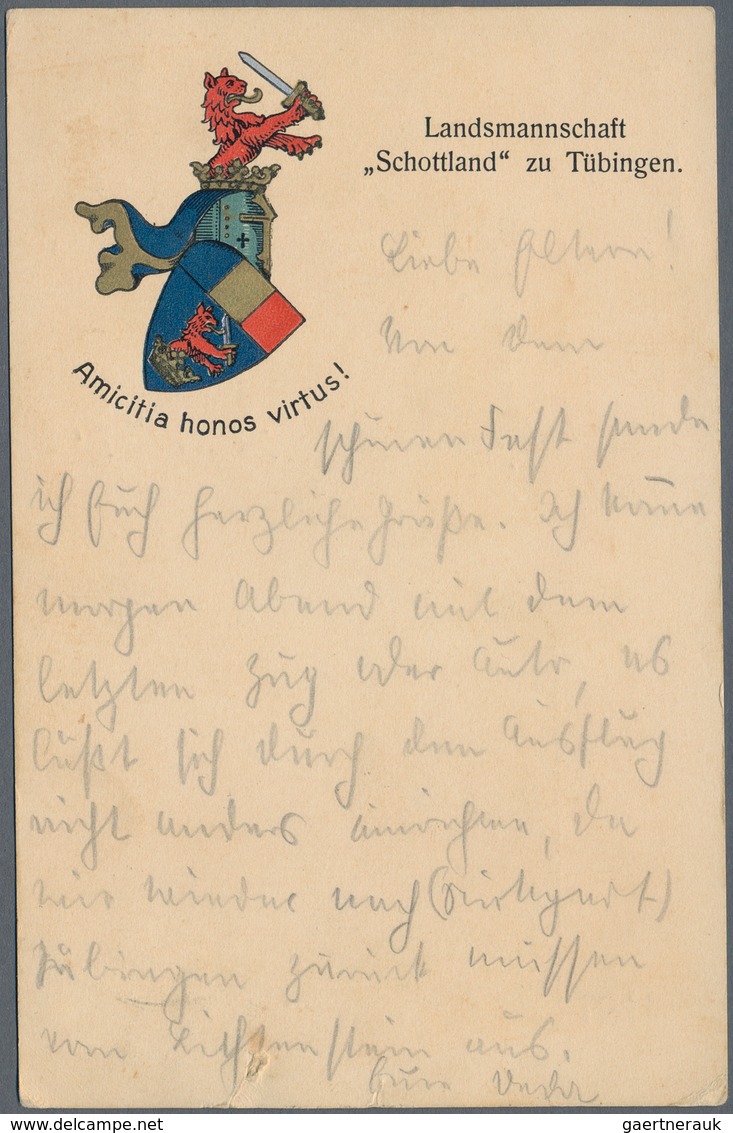 Landsmannschaft
„Schottland“ zu Tübingen.
Amicitia honos virtus!
Liebe Eltern!
Von dem
schönen Fest sende
ich Euch herzliche Grüße. Ich komme
morgen Abend mit dem
letzten Zug oder Auto, es
läßt sich durch den Ausflug
nicht anders einrichten, da
wir wieder nach (Stuttgart)
Tübingen zurück müssen
vom Lichtenstein aus.
Eure
gaertnerauk